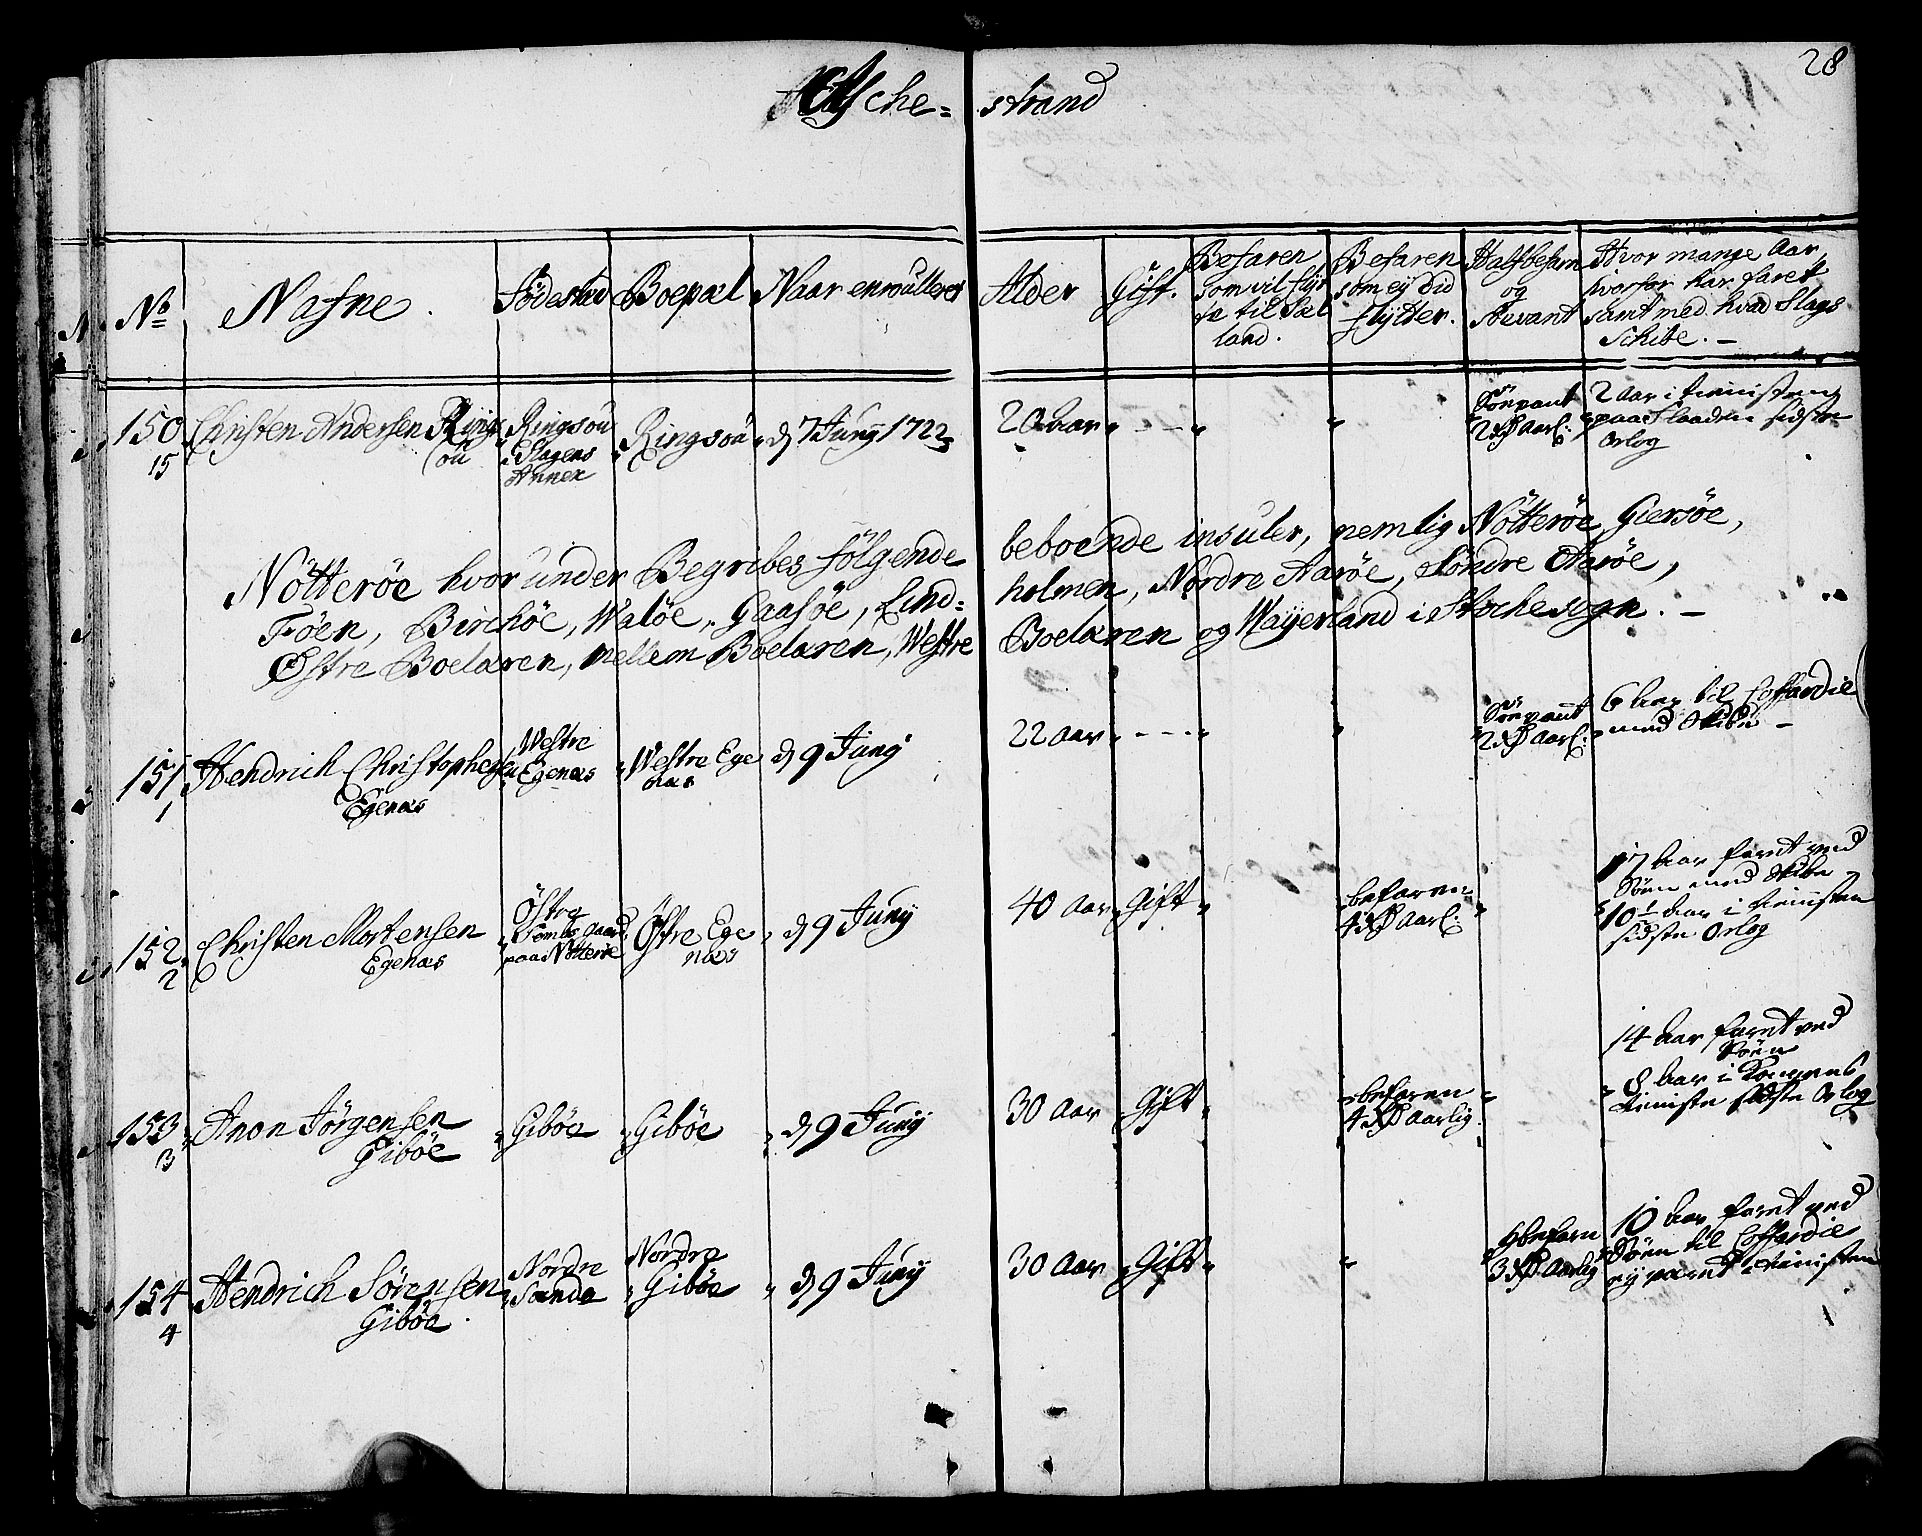 28
Asche= strand
No Nafne. Födested Boepæl Naar enroulleret Alder Gift. Befaren som vil flytte til Sæland. Befaren som ey vid flytter. Halfbefarn og Sevant Hvor mange Aar hvorfor har faret samt med hvad Slags Schibe. –
150 15 Christen Andersen Ringsou Ringsou Slagens Annex Ringsou d 7 Juny 1722 20 aar Aarl: 2 Aar i sidste Orlog
Nötteröe hvorunder Begribes fölgende beboende insuler, nemlig Nötteröe, Giersöe,
Föen, Birchöe, Walöe, Gaasöe, Lind= holmen, Nordre Aaröe, Söndre Aaröe,
Östre Boelæren, mellem Boelæren, Westre Boelæren og Wayerland i Stochesogn. –
151 1 Hendrich Christophersen Egenæs Westre Egenæs Westre Egenæs d 9 Juny 22 aar Aarl: 6 Aar til Coffardie med Skibe –
152 2 Christen Mortensen Egenæs Östre gaard paa Nötteröe Östre Egenæs d 9 Juny 40 aar Gift befaren 4 Aarl: 17 Aar faret ved Söen med Skibe 10 Aar i sidste Orlog
153 3 Anon Jörgensen Giböe Giböe Giböe d 9 Juny 30 aar Gift befaren 4 Aarlig 14 Aar faret ved Söen 8 Aar i sidste Orlog
154 4 Hendrich Sörensen Giböe Nordre Sande Nordre Giböe d 9 Juny 30 aar Gift 3 Aarlig 10 Aar faret ved Söen til Coffardie